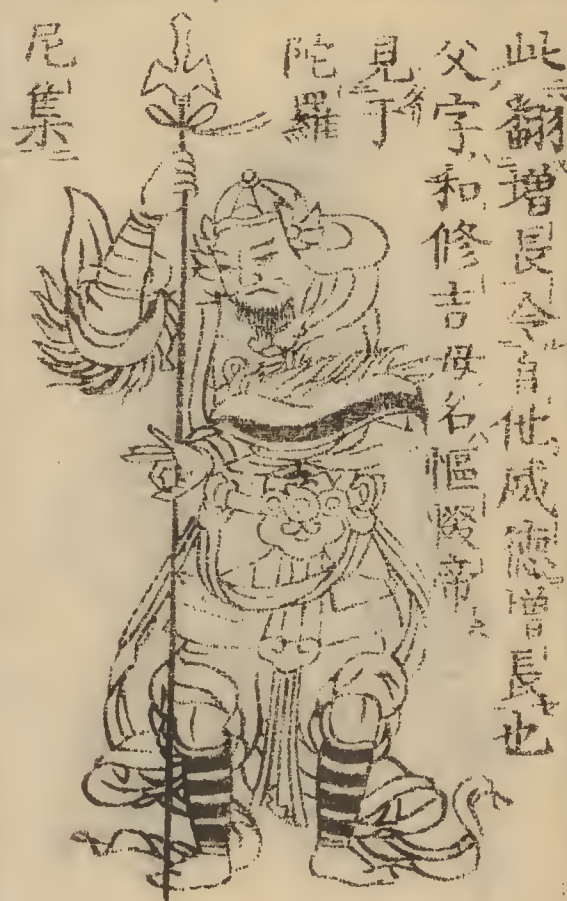 此翻增長令自他威德增長也
父字和修吉母名慪㗇帝
見于
陀羅
尼集